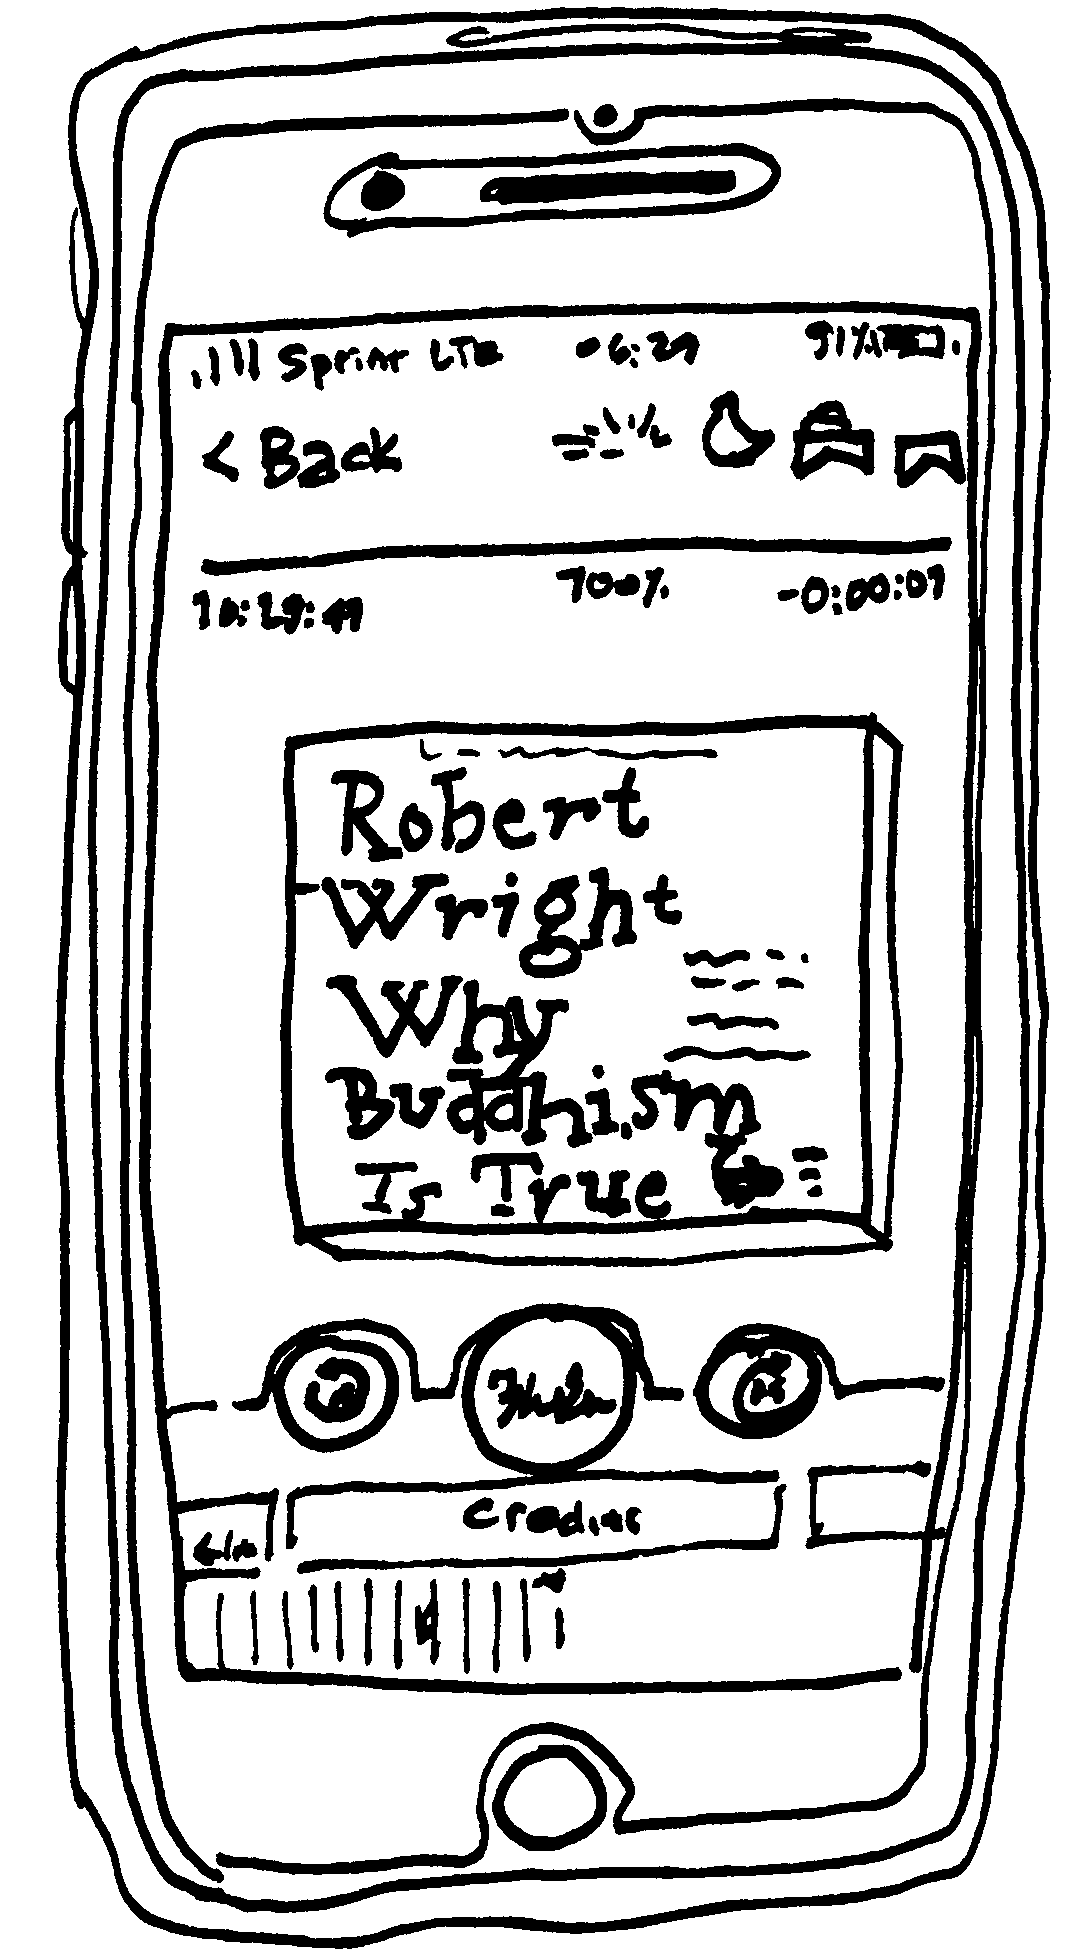 Sprint LTE 6:29 91%
< Back
10:29:49 100% -0:00:07
Robert
Wright
Why
Buddhism
Is True
Credits